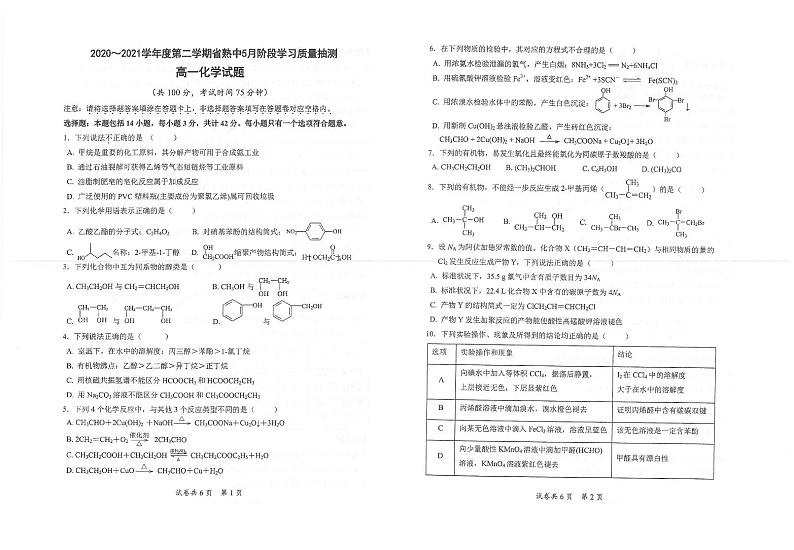 2020～2021学年度第二学期省熟中5月阶段学习质量抽测
高一化学试题
（共 100 分，考试时间 75 分钟）
注意：请将选择题答案填涂在答题卡上，非选择题答案填写在答题卷对应空格内。
选择题：本题包括 14 小题，每小题 3 分，共计 42 分。每小题只有一个选项符合题意。
1．下列说法不正确的是（ ）
A. 甲烷是重要的化工原料，其分解产物可用于合成氨工业
B. 通过石油裂解可获得乙烯等气态短链烃等工业原料
C. 油脂制肥皂的皂化反应属于加成反应
D. 广泛使用的 PVC 塑料瓶(主要成份为聚氯乙烯)属可回收垃圾
2．下列化学用语表示正确的是（ ）
A. 乙酸乙酯的分子式：C₂H₈O₂ B. 对硝基苯酚的结构简式：NO₂ OH
C. HO 名称：2-甲基-1-丁醇 D. OH CH₂COOH缩聚产物结构简式：
3．下列化合物中互为同系物的醇类是（ ）
A. CH₃CH₂OH 与 CH₂=CHCH₂OH B. CH₃OH 与 CH₂—CH₂ OH OH
C. CH₂—CH₂ OH OH 与 CH₂—CH₂—CH₂ OH OH D. OH 与 CH₂OH
4．下列说法正确的是（ ）
A. 室温下，在水中的溶解度：丙三醇＞苯酚＞1-氯丁烷
B. 有机物沸点：乙醇＞乙二醇＞异丁烷＞正丁烷
C. 用核磁共振氢谱不能区分 HCOOCH₃ 和 HCOOCH₂CH₃
D. 用 Na₂CO₃ 溶液不能区分 CH₃COOH 和 CH₃COOCH₂CH₃
5．下列 4 个化学反应中，与其他 3 个反应类型不同的是（ ）
A. CH₃CHO＋2Cu(OH)₂ ＋NaOH △ CH₃COONa＋Cu₂O↓＋3H₂O
B. 2CH₂=CH₂＋O₂ 催化剂 △ 2CH₃CHO
C. CH₃CH₂COOH＋CH₃CH₂OH 浓H₂SO₄ △ CH₃CH₂COOC₂H₅＋H₂O
D. CH₃CH₂OH＋CuO △ CH₃CHO＋Cu＋H₂O
试卷共 6 页 第 1 页
6．在下列物质的检验中，其对应的方程式不合理的是（ ）
A. 用浓氨水检验泄漏的氯气，产生白烟：8NH₃+3Cl₂ = N₂+6NH₄Cl
B. 用硫氰酸钾溶液检验 Fe³⁺，溶液变红色：Fe³⁺ +3SCN⁻ ⇌ Fe(SCN)₃
C. 用浓溴水检验水体中的苯酚，产生白色沉淀： OH + 3Br₂ → OH Br Br Br ↓
D. 用新制 Cu(OH)₂ 悬浊液检验乙醛，产生砖红色沉淀：
CH₃CHO + 2Cu(OH)₂ + NaOH △ CH₃COONa + Cu₂O↓+ 3H₂O
7．下列的有机物，易发生氧化且最终能氧化为同碳原子数羧酸的是（ ）
A. CH₃CH₂CH₂OH B. (CH₃)₂CHOH C. C₆H₅OH D. (CH₃)₂CO
8．下列的有机物，不能经一步反应生成 2-甲基丙烯（ CH₃ CH₃—C=CH₂ ）的是（ ）
A. CH₃ CH₃—C—OH CH₃ B. CH₃ OH CH₃—CH—CH₂ C. CH₃ CH₃—CBr—CH₃ D. Br CH₃—C—CH₂Br CH₃
9．设 NA 为阿伏加德罗常数的值，化合物 X（CH₂=CH－CH=CH₂）与相同物质的量的
Cl₂ 发生反应生成产物 Y，下列说法正确的是（ ）
A. 标准状况下，35.5 g 氯气中含有质子数目为 34NA
B. 标准状况下，22.4 L 化合物 X 中含有的碳原子数为 4NA
C. 产物 Y 的结构简式一定为 ClCH₂CH＝CHCH₂Cl
D. 产物 Y 发生加聚反应的产物能使酸性高锰酸钾溶液褪色
10．下列实验操作、现象及所得到的结论均正确的是（ ）
选项 实验操作和现象 结论
A 向碘水中加入等体积 CCl₄，振荡后静置， I₂ 在 CCl₄ 中的溶解度
上层接近无色，下层显紫红色 大于在水中的溶解度
B 丙烯醛溶液中滴加溴水，溴水橙色褪去 证明丙烯醛中含有碳碳双键
C 向某无色溶液中滴入 FeCl₃ 溶液，溶液呈蓝色 该无色溶液是一定含苯酚
D 向少量酸性 KMnO₄ 溶液中滴加甲醛(HCHO) 甲醛具有漂白性
溶液，KMnO₄ 溶液紫红色褪去
试卷共 6 页 第 2 页